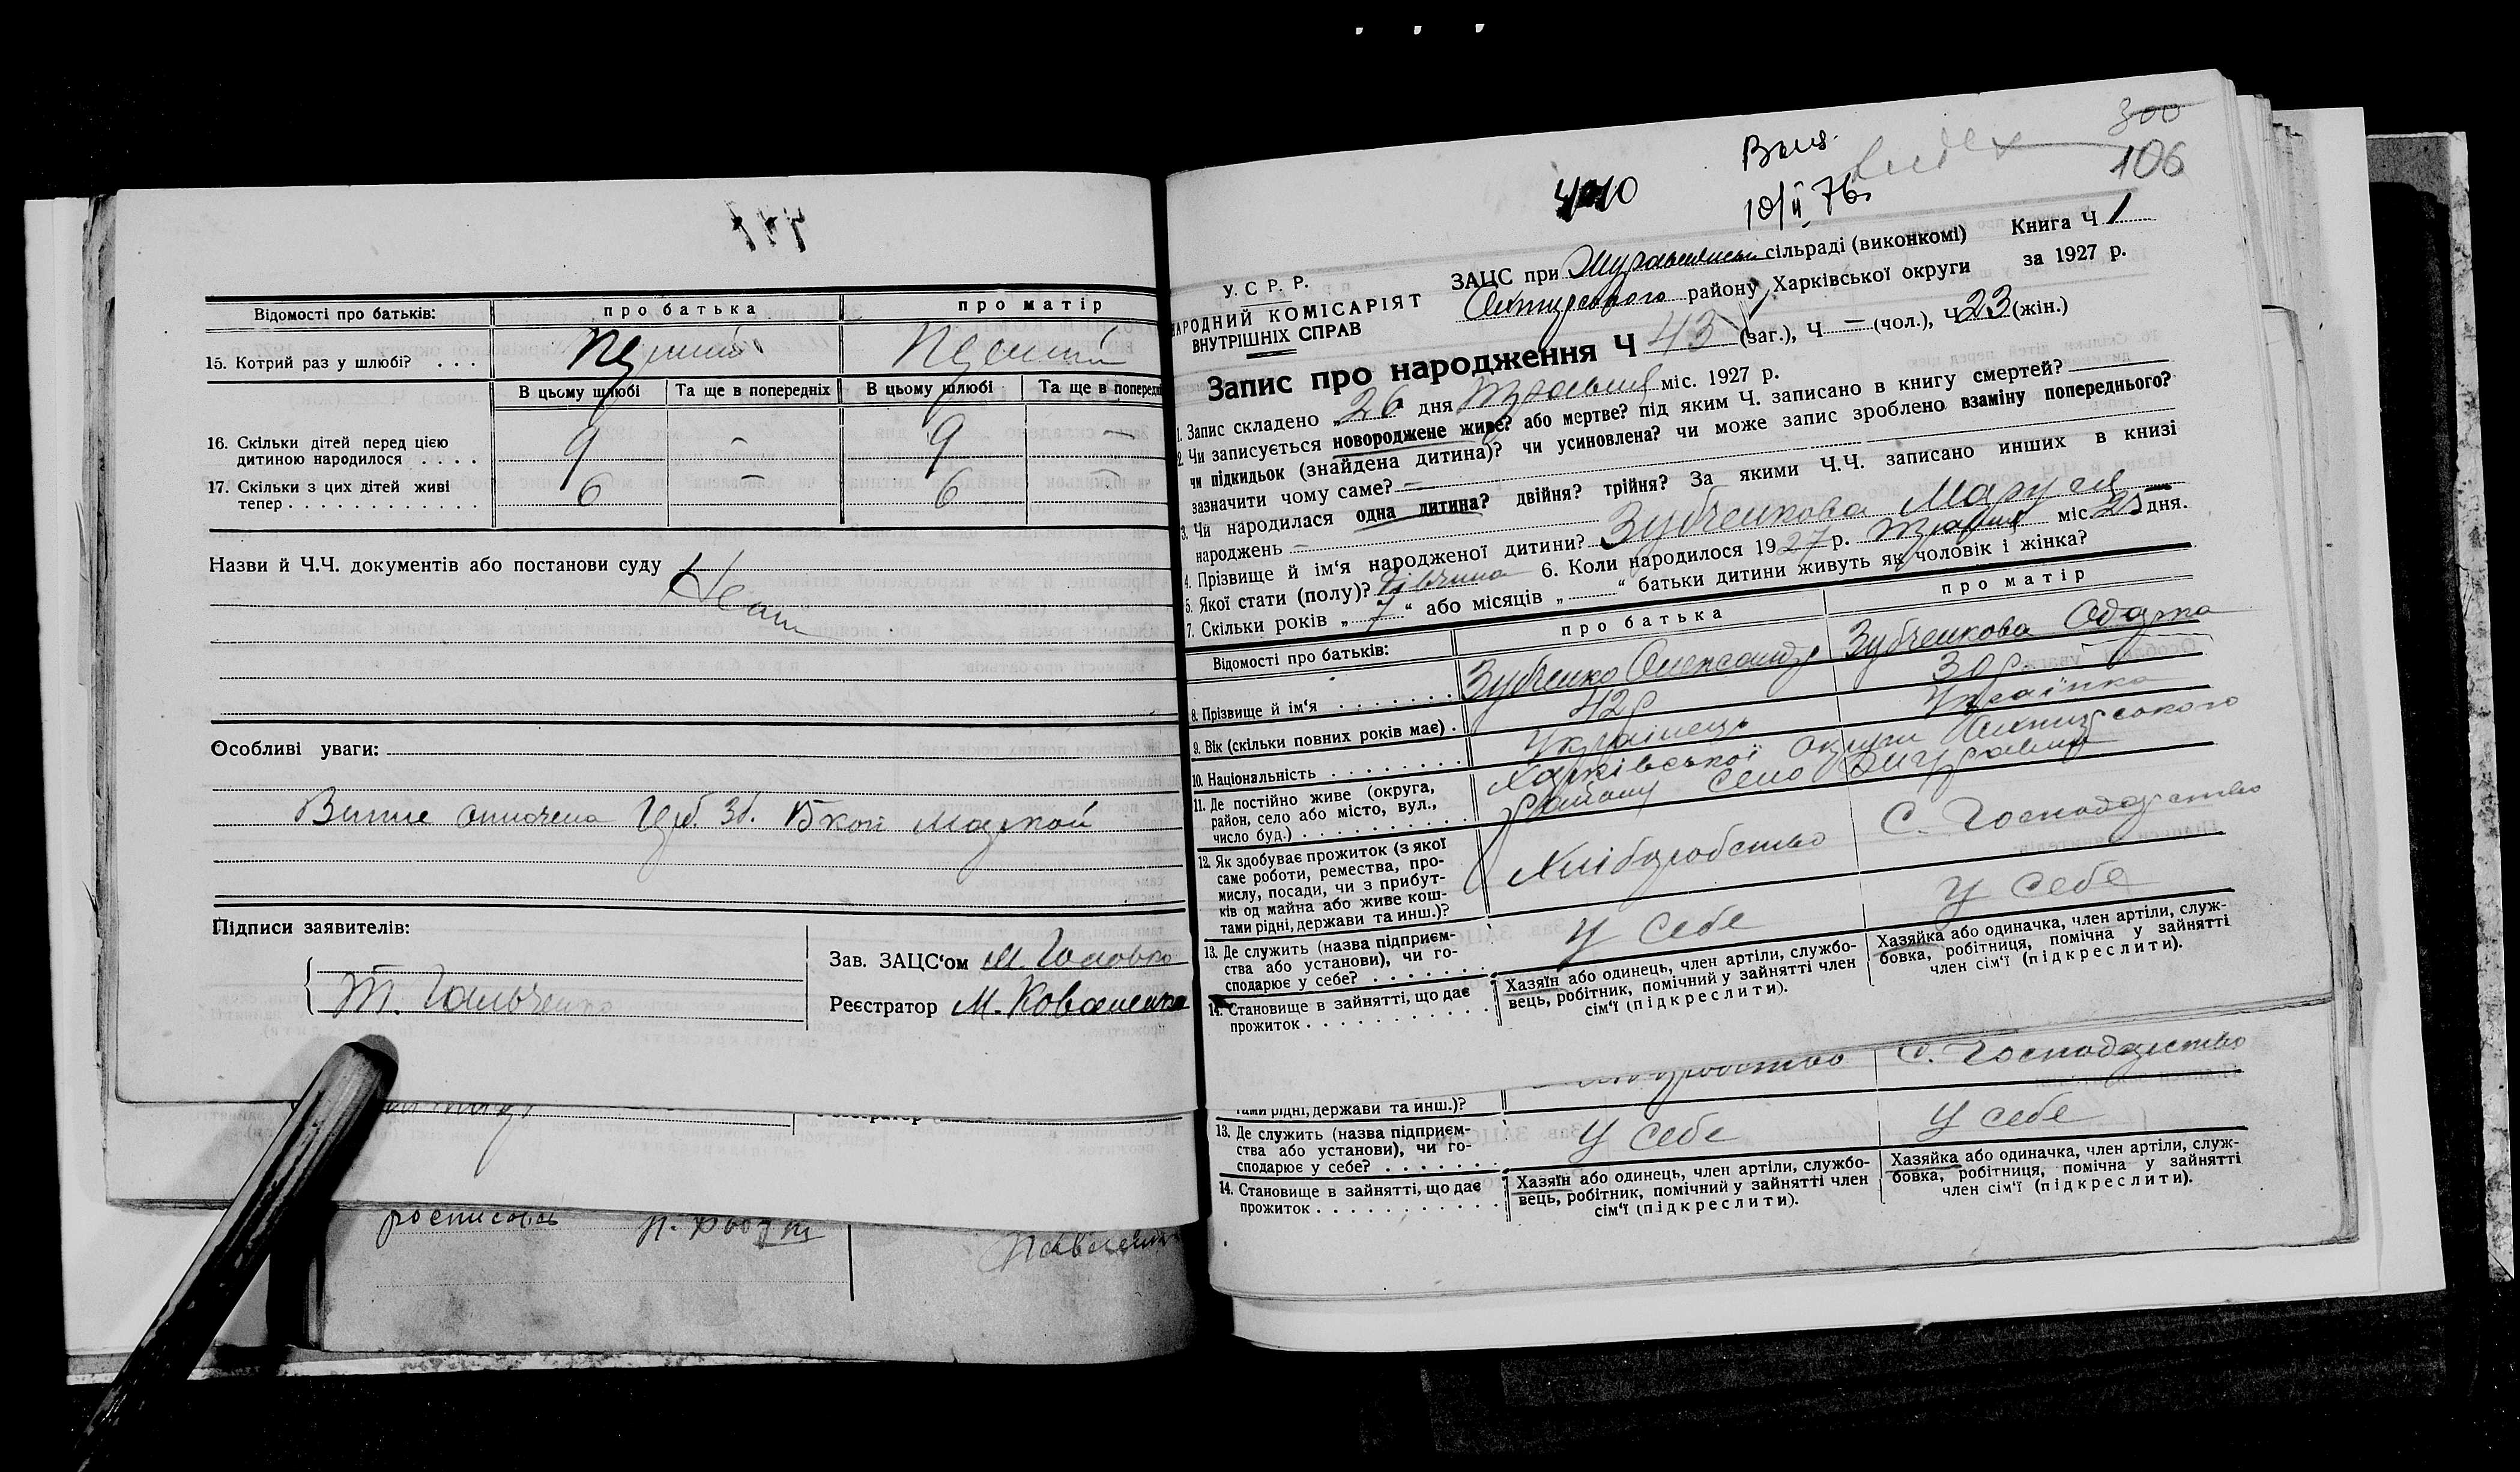 Відомості про батьків: про батька про матір
15. Котрий раз у шлюбі? . . . Перший Перший
В цьому шлюбі Та ще в попередніх В цьому шлюбі Та ще в попередні
16. Скільки дітей перед цією
дитиною народилося . . . . 9 - 9 -
17. Скільки з цих дітей живі
тепер . . . . . . . . . . . . 6 - 6 -
Назви й Ч.Ч. документів або постанови суду
Особливі уваги:
Зб. 15 коп маркой
Підписи заявителів:
Зав. ЗАЦС‘ом М. Головко
Т. Гальченко
Реєстратор М. Коваленко
росписовсь
300
106
Выд.
10/II 76
Index
У. С Р. Р.
НАРОДНИЙ КОМІСАРІЯТ
ВНУТРІШНІХ СПРАВ
ЗАЦС при сільраді (виконкомі) Книга Ч 1
району, Харківської округи за 1927 р.
Запис про народження Ч 43 (заг.), Ч — (чол.), Ч 23 (жін.)
1. Запис складено „26 дня Травня міс. 1927 р.
2. Чи записується новороджене живе? або мертве? під яким Ч. записано в книгу смертей?
чи підкидьок (знайдена дитина)? чи усиновлена? чи може запис зроблено взаміну попереднього?
зазначити чому саме? —
3. Чи народилася одна дитина? двійня? трійня? За якими Ч.Ч. записано инших в книзі
народжень —
4. Прізвище й ім‘я народженої дитини? Зубченкова Маруся
5. Якої стати (полу)? дівчина 6. Коли народилося 1927 р. травня міс. 25 дня.
7. Скільки років „7“ або місяців „ “ батьки дитини живуть як чоловік і жінка?
Відомості про батьків: про батька про матір
8. Прізвище й ім‘я . . . . . . . . Зубченко Олександр Зубченкова Одарка
9. Вік (скільки повних років має) . 42 р 30 р.
10. Національність . . . . . . . . Українець Українка
11. Де постійно живе (округа,
район, село або місто, вул.,
число буд.) . . . . . . . . . . Харківської округи
району село
12. Як здобуває прожиток (з якої
саме роботи, ремества, про-
мислу, посади, чи з прибут-
ків од майна або живе кош-
тами рідні, держави та инш.)? Хліборобство С. Господарство
13. Де служить (назва підприєм-
ства або установи), чи го-
сподарює у себе? . . . . . . . У себе У себе
14. Становище в зайнятті, що дає
прожиток . . . . . . . . . . .
Хазяїн або одинець, член артіли, службо-
вець, робітник, помічний у зайнятті член
сім‘ї (підкреслити).
Хазяйка або одиначка, член артіли, служ-
бовка, робітниця, помічна у зайнятті
член сім‘ї (підкреслити).
С. Господарство
тами рідні, держави та инш.)?
13. Де служить (назва підприєм-
ства або установи), чи го-
сподарює у себе? . . . . . . . У себе У себе
14. Становище в зайнятті, що дає
прожиток . . . . . . . . . . .
Хазяїн або одинець, член артіли, службо-
вець, робітник, помічний у зайнятті член
сім‘ї (підкреслити).
Хазяйка або одиначка, член артіли, служ-
бовка, робітниця, помічна у зайнятті
член сім‘ї (підкреслити).